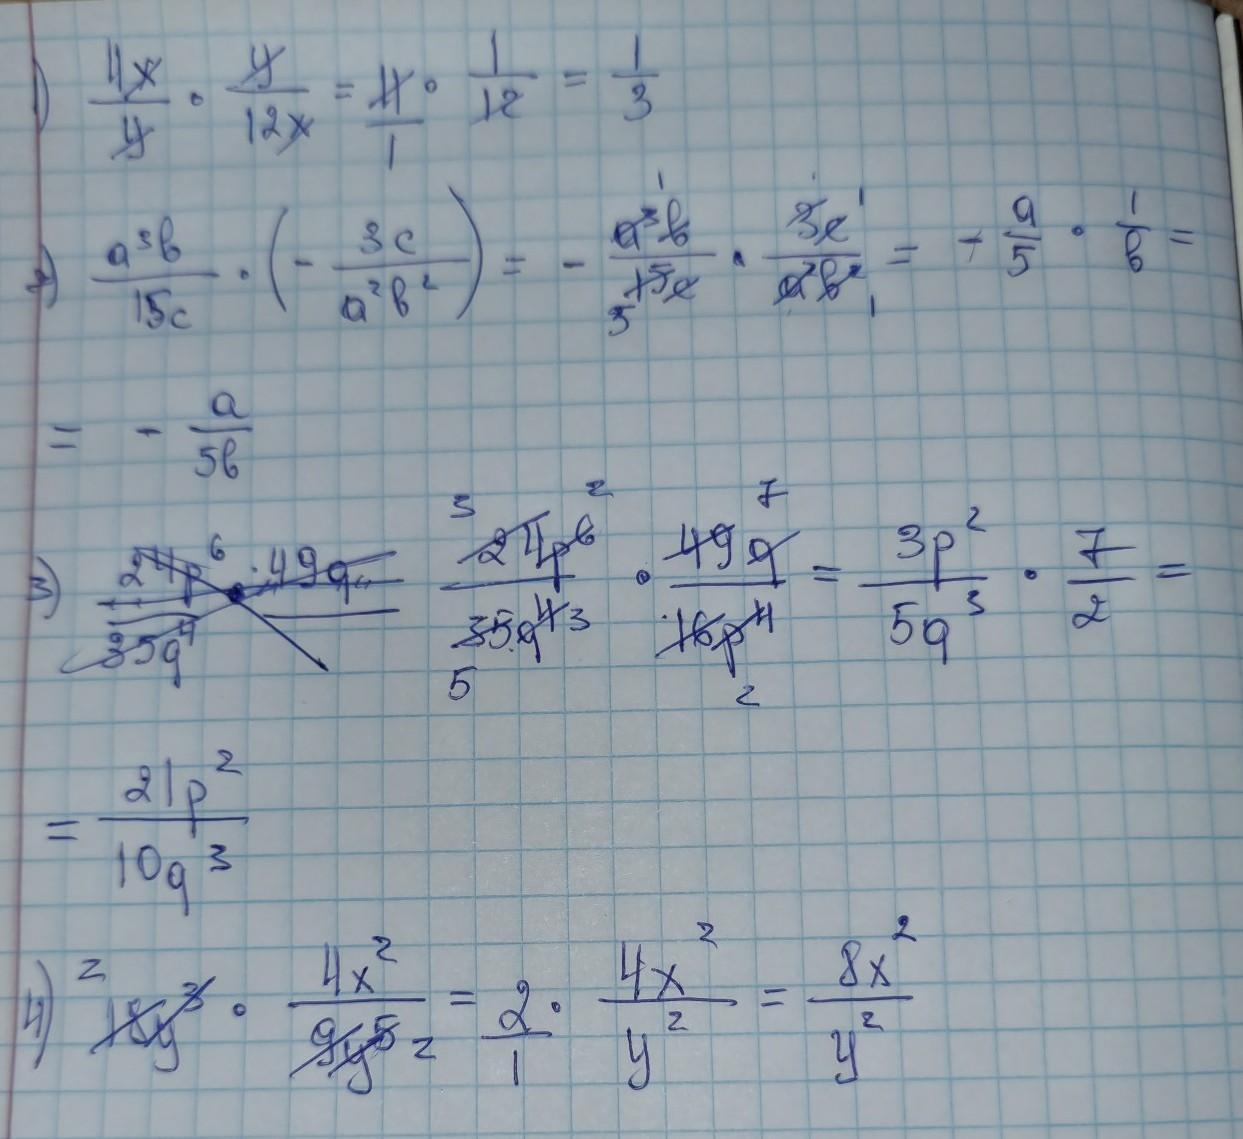 1) 4x/y · y/12x = 4/1 · 1/12 = 1/3
2) a³b/15c · (- 3c/a²b²) = - a³b/15c · 3c/a²b² = - a/5 · 1/b =
= - a/5b
3) 24p⁶/35q⁴ · 49q 24p⁶/35q⁴ · 49q/16p⁴ = 3p²/5q³ · 7/2 =
= 21p²/10q³
4) 18y³ · 4x²/9y⁵ = 2/1 · 4x²/y² = 8x²/y²